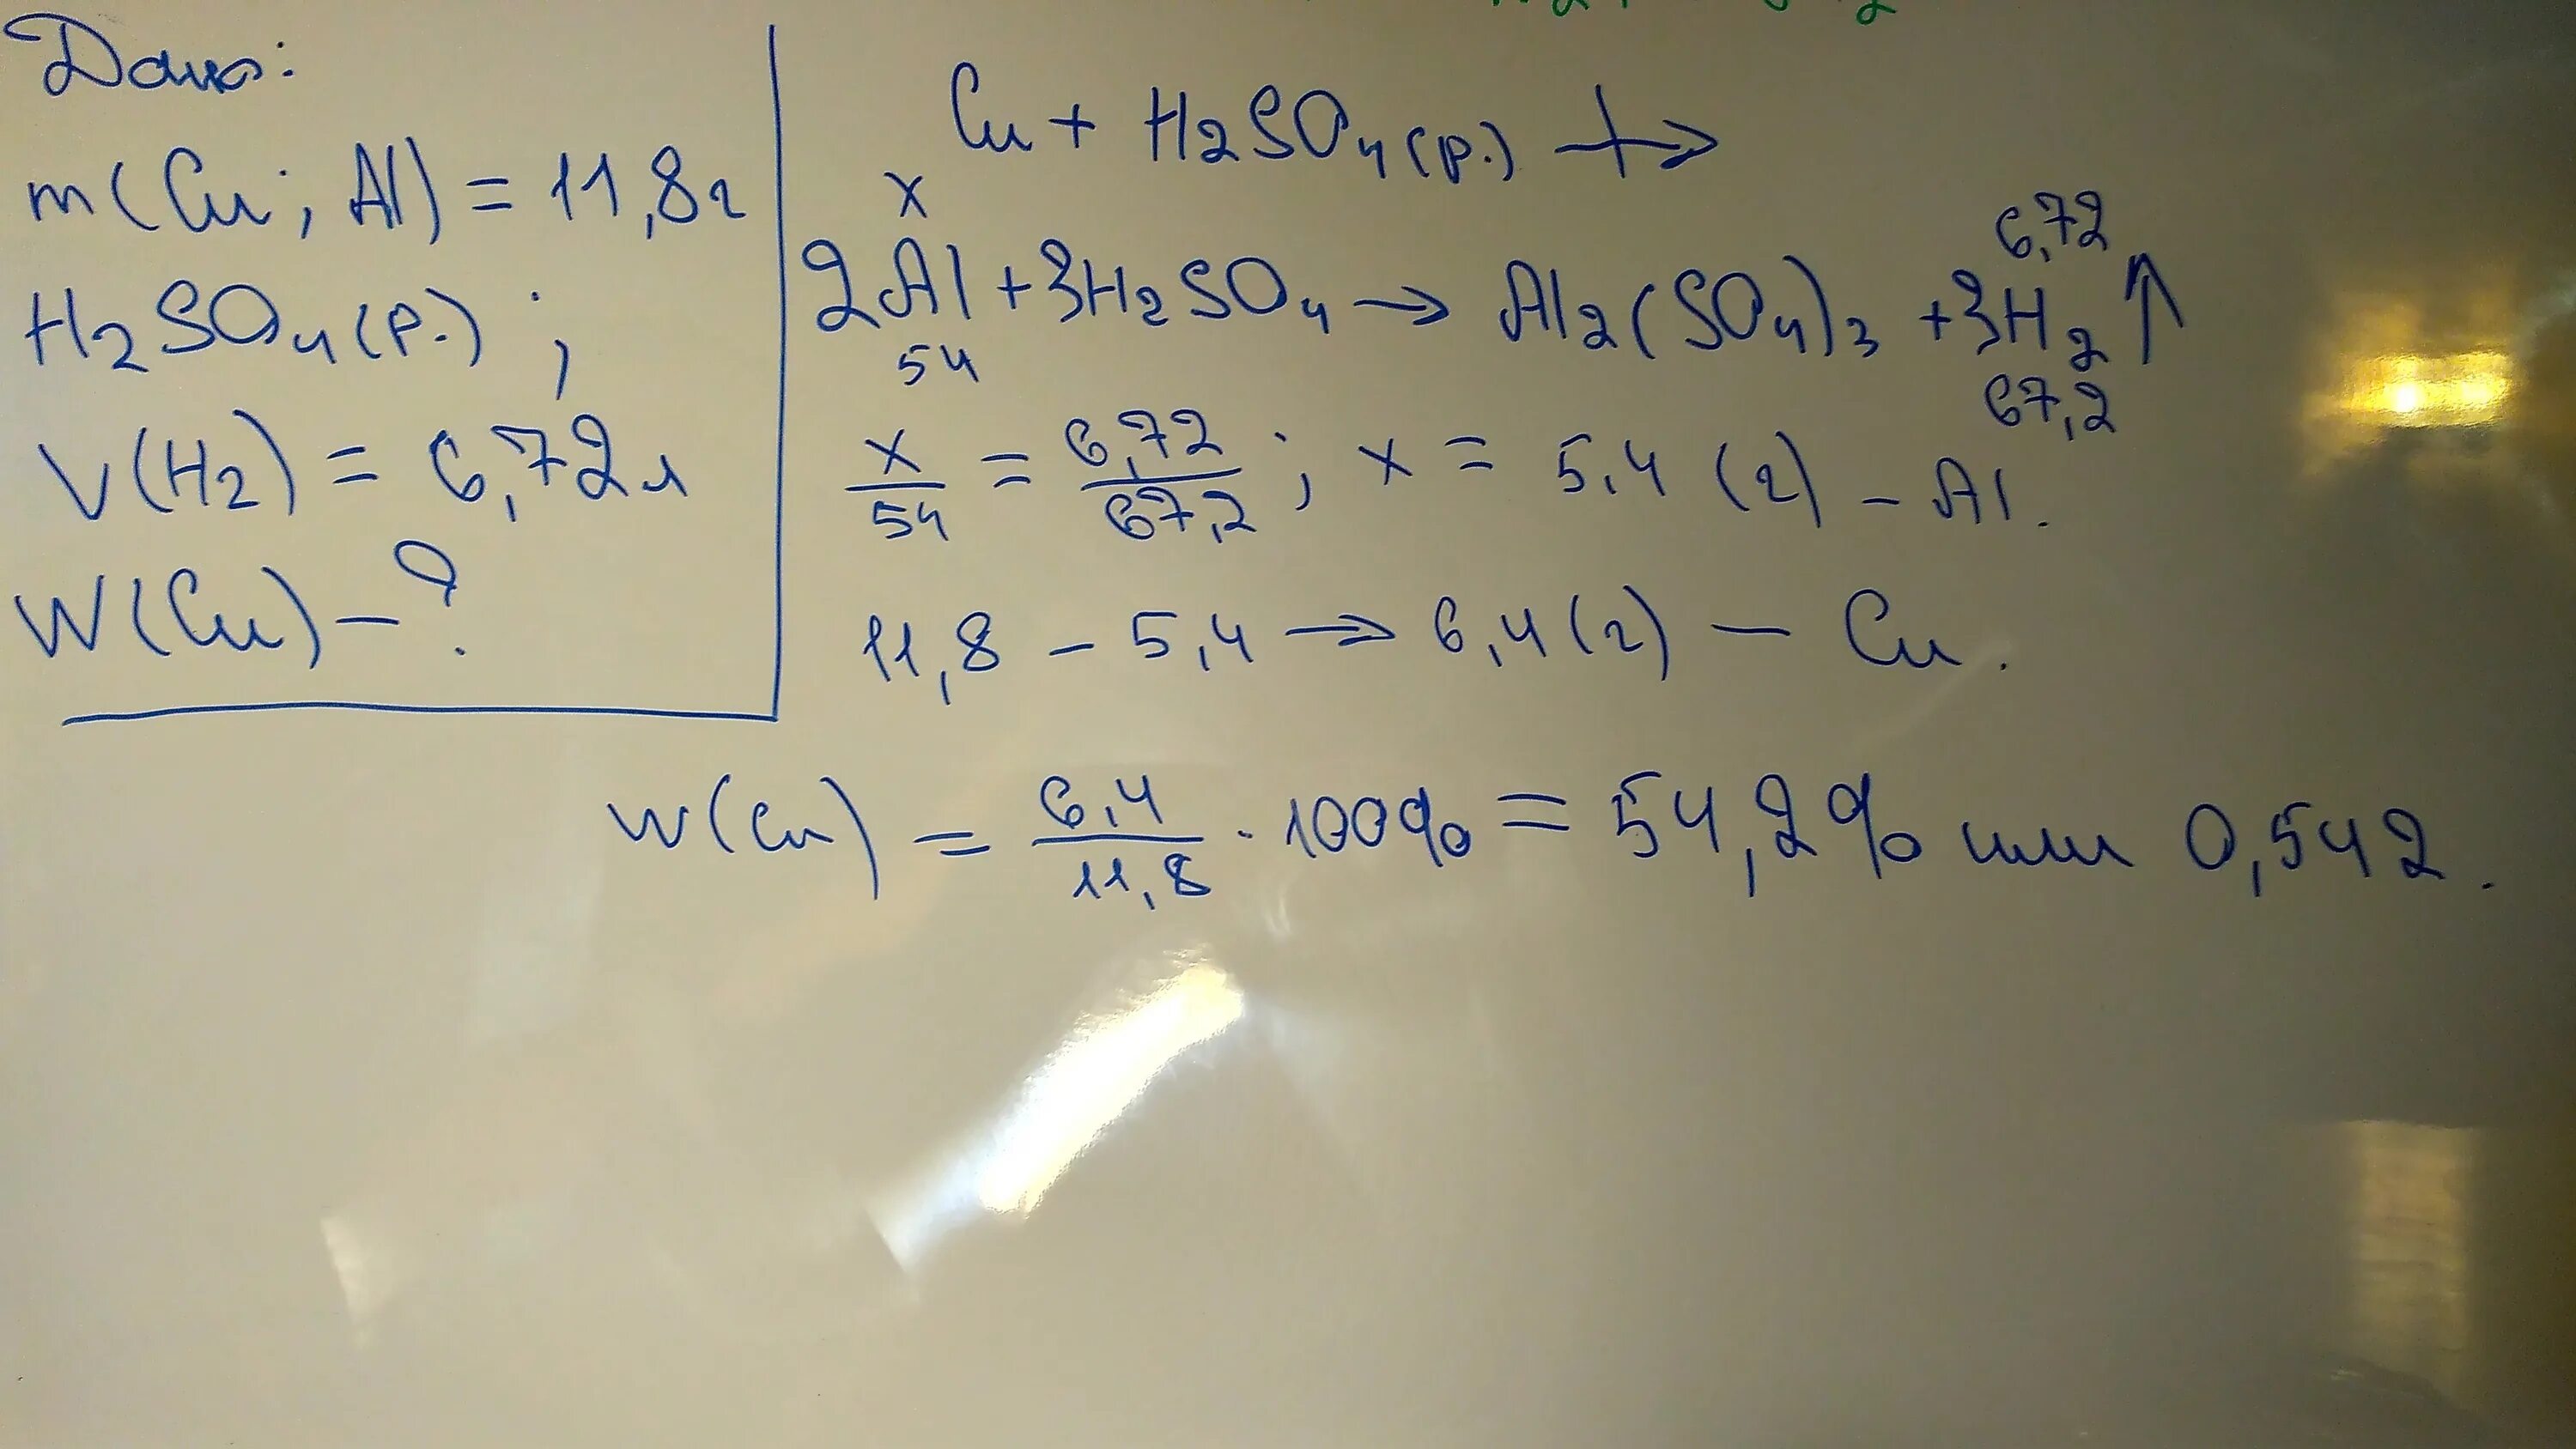 Дано:
m(Cu; Al) = 11,8г
H2SO4(р.);
V(H2) = 6,72л
W(Cu) - ?
Cu + H2SO4(р.) ↛
x 6,72
2Al + 3H2SO4 → Al2(SO4)3 + 3H2↑
54 67,2
x/54 = 6,72/67,2; x = 5,4 (г) - Al.
11,8 - 5,4 → 6,4(г) - Cu.
w(Cu) = 6,4/11,8 · 100% = 54,2% или 0,542.